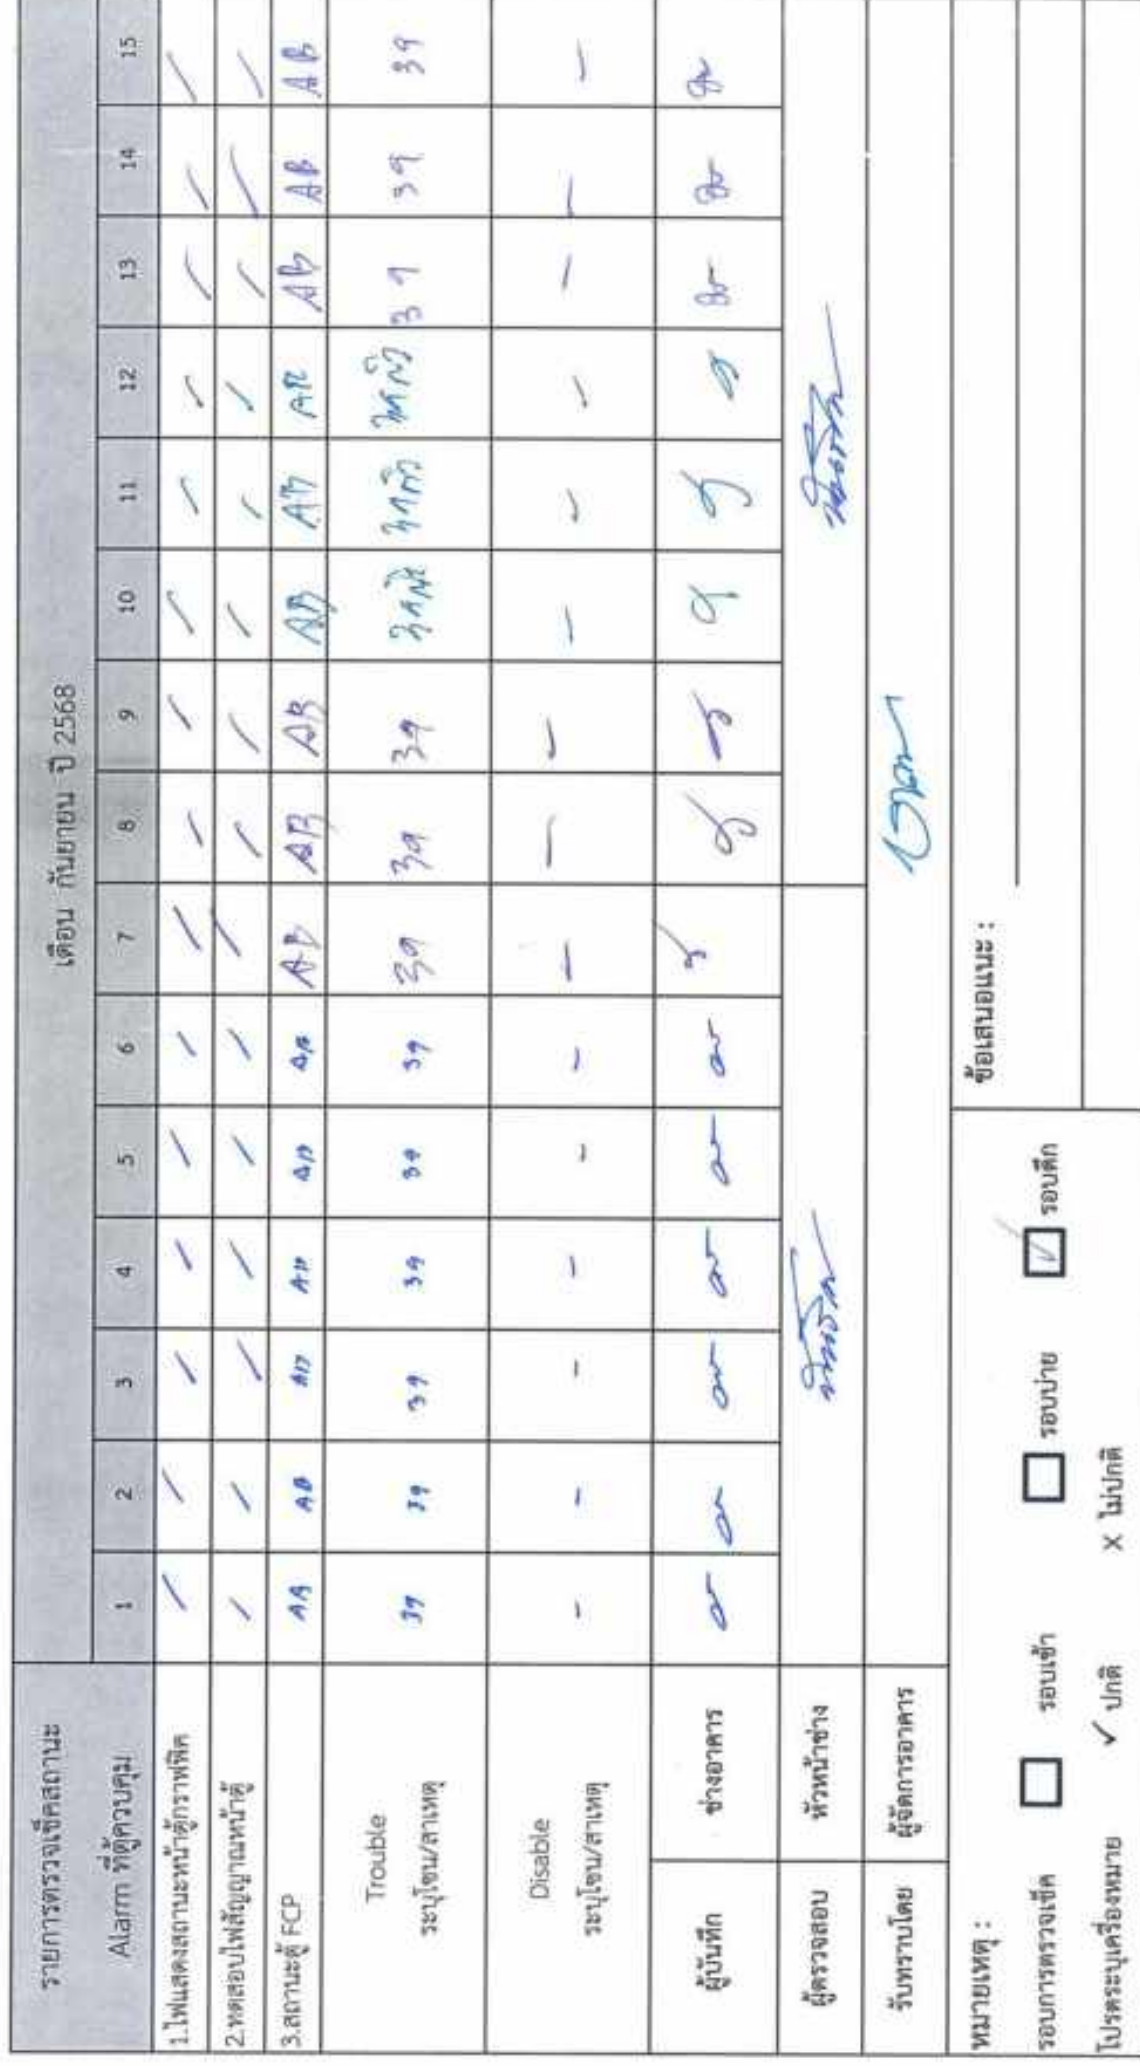 เดือน กันยายน ปี 2568
รายการตรวจเช็คสถานะ
Alarm ที่ตู้ควบคุม 1 2 3 4 5 6 7 8 9 10 11 12 13 14 15
1.ไฟแสดงสถานะหน้าตู้กราฟฟิค / / / / / / / / / / / / / / /
2.ทดสอบไฟสัญญาณหน้าตู้ / / / / / / / / / / / / / / /
3.สถานะตู้ FCP AB AB AB AB AB AB AB AB AB AB AB AB AB AB AB
Trouble
ระบุโซน/สาเหตุ 39 39 39 39 39 39 39 39 39 39 39 39
Disable
ระบุโซน/สาเหตุ - - - - - - - - - - - - - - -
ผู้บันทึก ช่างอาคาร
ผู้ตรวจสอบ หัวหน้าช่าง
รับทราบโดย ผู้จัดการอาคาร
หมายเหตุ : ข้อเสนอแนะ :
รอบการตรวจเช็ค รอบเช้า รอบบ่าย ✓ รอบดึก
โปรดระบุเครื่องหมาย ✓ ปกติ X ไม่ปกติ